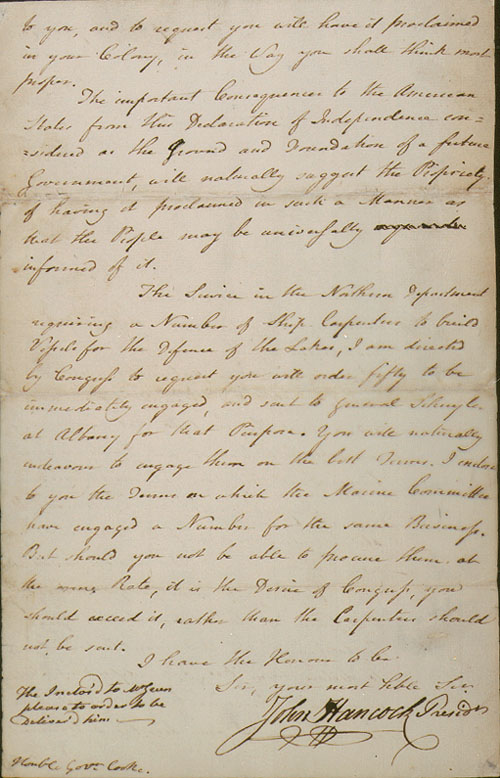 to you, and to request you will have it proclaimed
in your Colony, in the Way you shall think most
proper.
The important Consequences to the American
States from this Declaration of Independence con=
sidered as the Ground and Foundation of a future
Government, will naturally suggest the Propriety
of having it proclaimed in such a Manner as
that the People may be universally
informed of it.
The Service in the Northern Department
requiring a Number of Ship Carpenters to build
Vessels for the Defence of the Lakes, I am directed
by Congress to request you will order fifty to be
immediately engaged, and sent to General Schuyler
at Albany for that Purpose. You will naturally
endeavour to engage them on the best Terms. I enclose
to you the Terms on which the Marine Committee
have engaged a Number for the same Business.
But should you not be able to procure them at
the Rate, it is the Desire of Congress, you
should exceed it, rather than the Carpenters should
not be sent.
I have the Honour to be
Sir, your most hble Ser.
The Inclos'd to
please to order to be
deliver'd him
John Hancock Presidt
Honble Govr Cooke.